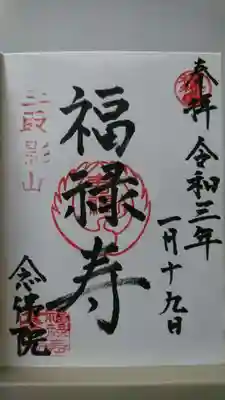 奉拝 令和三年
一月十九日
福禄寿
三段影山
念佛院